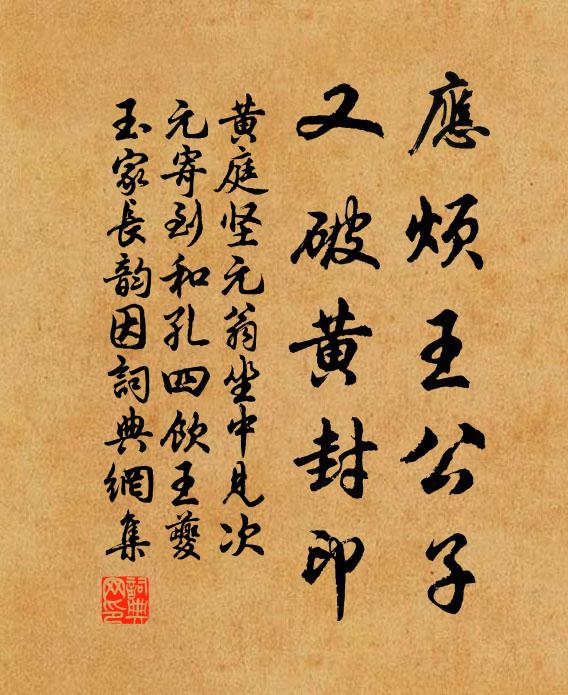 應煩王公子
又破黃封印
黄庭坚元翁坐中見次
元寄到和孔四飲王夔
玉家長韵因詞典網集
詞典網印